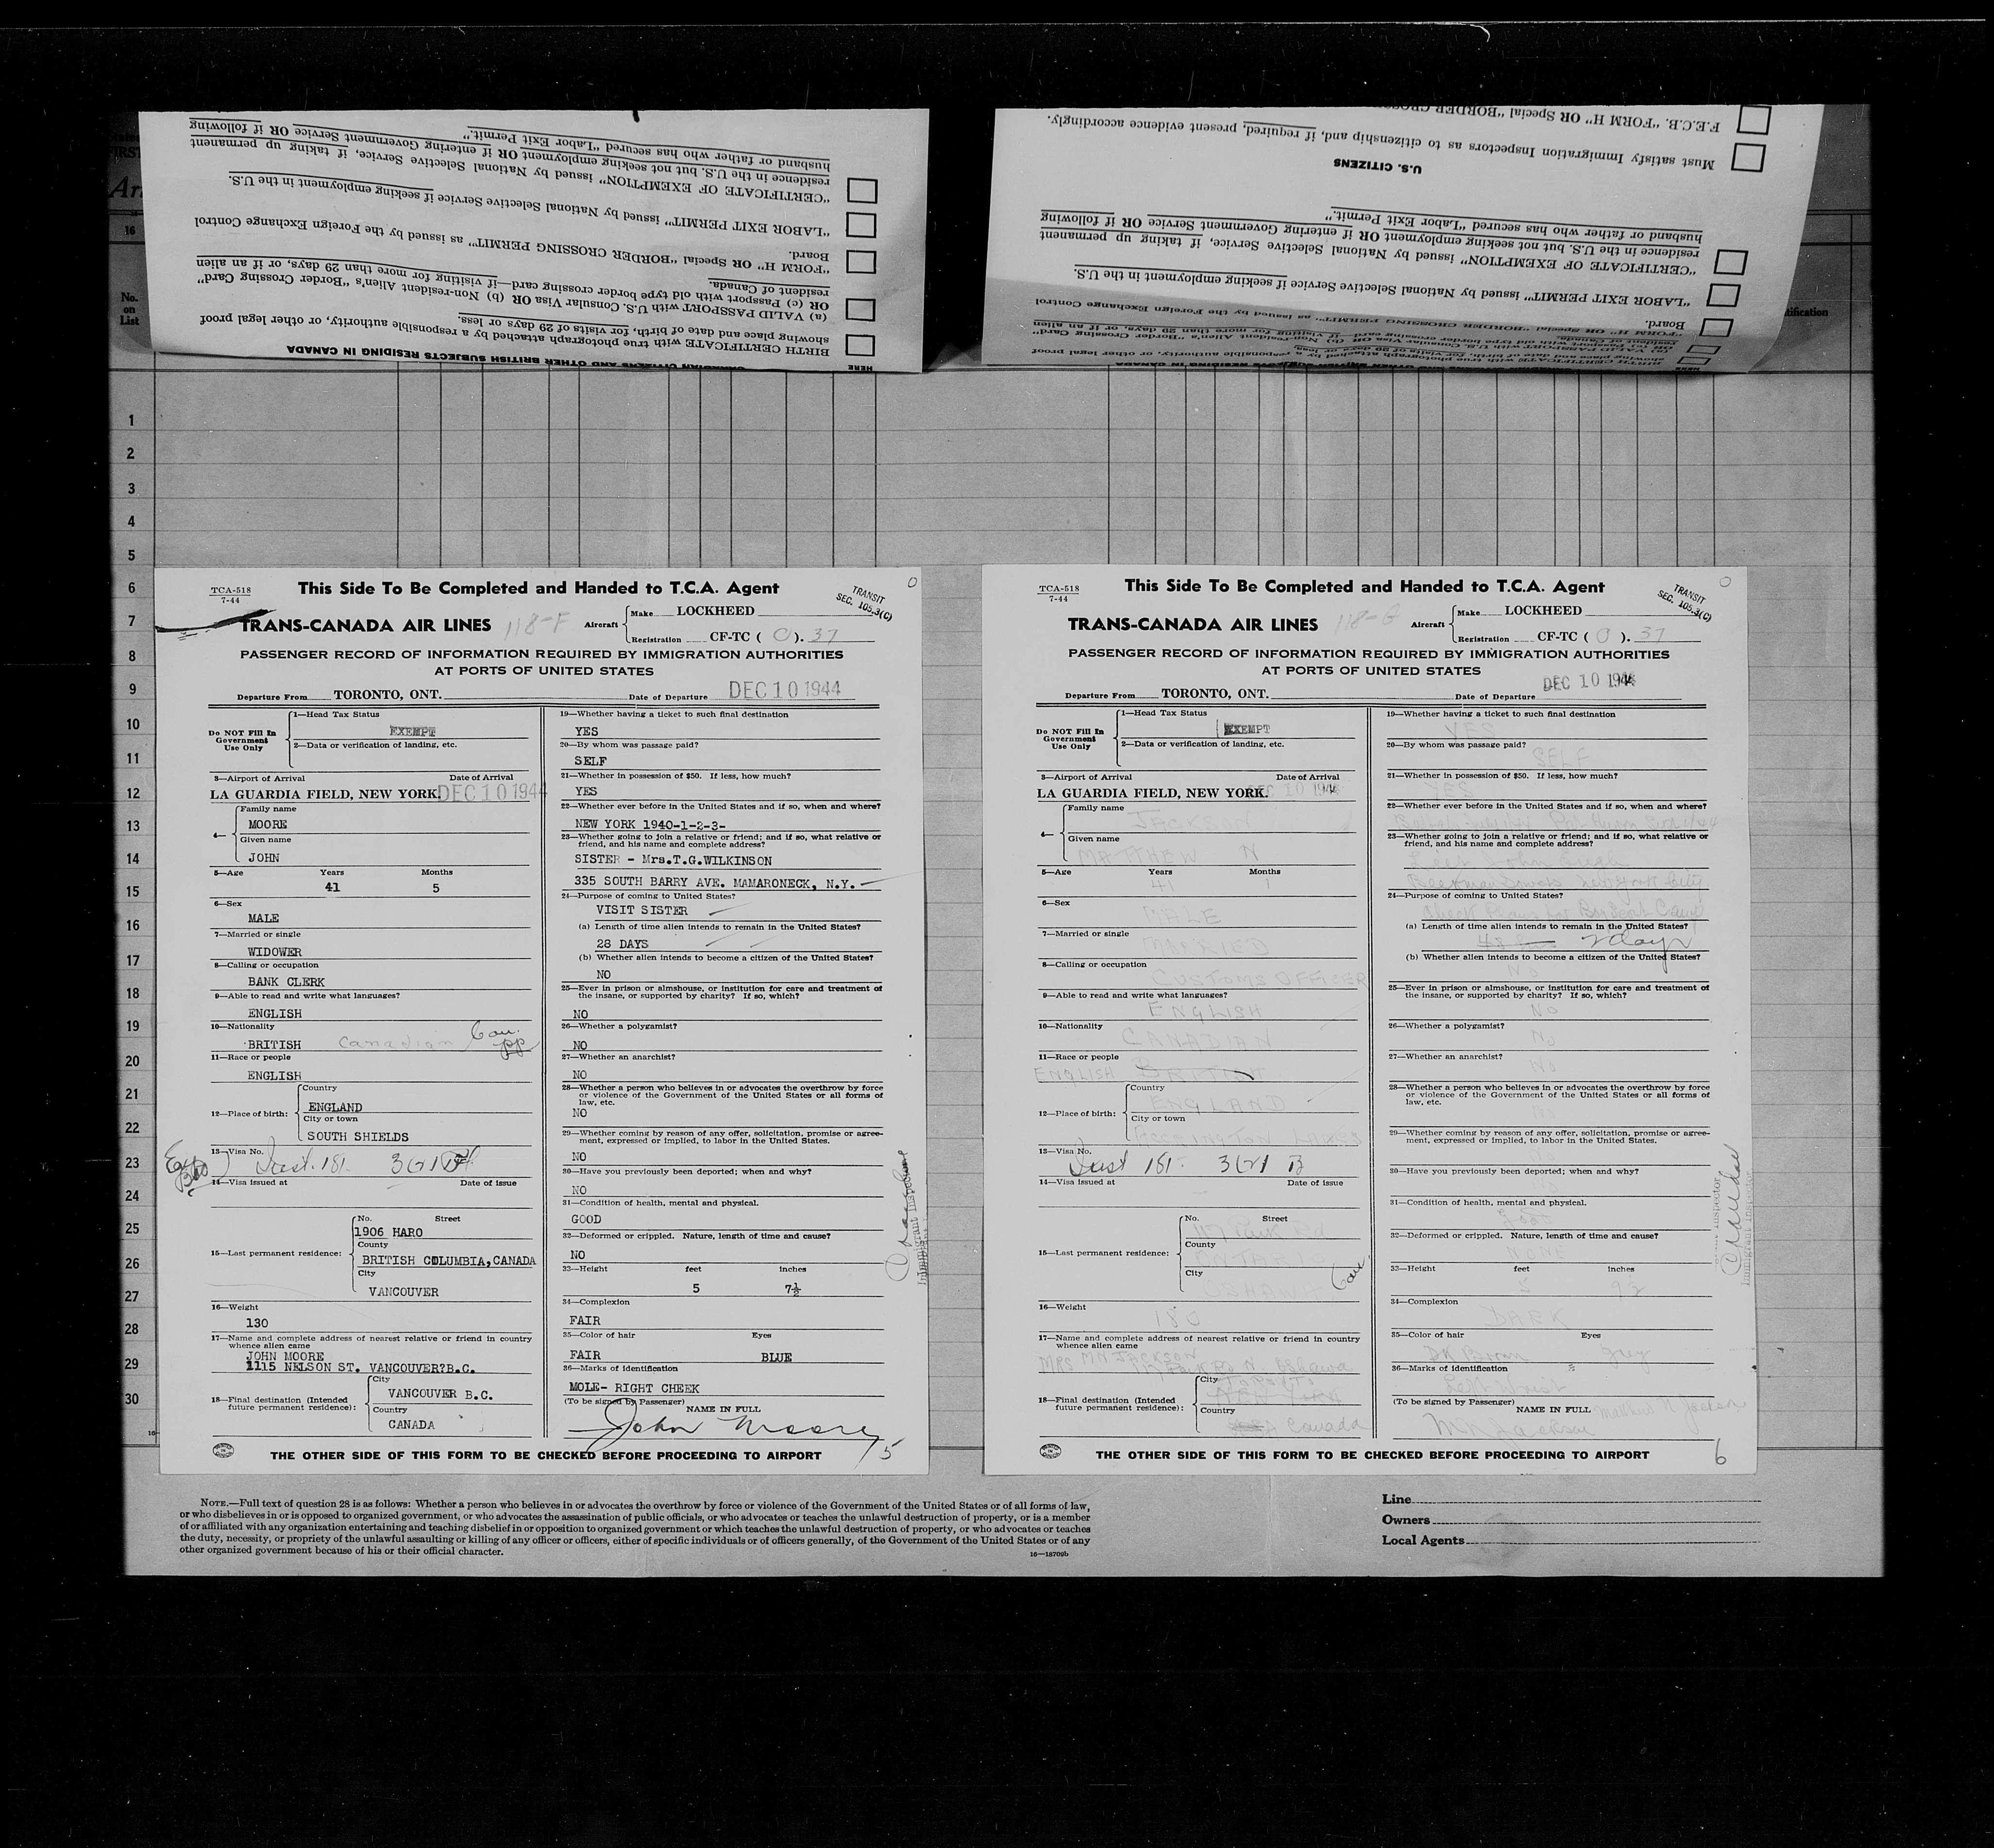 husband or father who has secured "Labor Exit Permit."
residence in the U.S. but not seeking employment OR if entering Government Service OR if following
"CERTIFICATE OF EXEMPTION" issued by National Selective Service, if taking up permanent
"LABOR EXIT PERMIT" issued by National Selective Service if seeking employment in the U.S.
Board.
"FORM H" OR Special "BORDER CROSSING PERMIT" as issued by the Foreign Exchange Control
resident of Canada.
OR (c) Passport with old type border crossing card—if visiting for more than 29 days, or if an alien
(a) VALID PASSPORT with U.S. Consular Visa OR (b) Non-resident Alien's "Border Crossing Card"
showing place and date of birth, for visits of 29 days or less.
BIRTH CERTIFICATE with true photograph attached by a responsible authority, or other legal proof
CANADIAN CITIZENS AND OTHER BRITISH SUBJECTS RESIDING IN CANADA
HERE
F.E.C.B. "FORM H" OR Special "BORDER
Must satisfy Immigration Inspectors as to citizenship and, if required, present evidence accordingly.
U.S. CITIZENS
husband or father who has secured "Labor Exit Permit."
residence in the U.S. but not seeking employment OR if entering Government Service OR if following
"CERTIFICATE OF EXEMPTION" issued by National Selective Service, if taking up permanent
"LABOR EXIT PERMIT" issued by National Selective Service if seeking employment in the U.S.
Board.
"FORM H" OR Special "BORDER CROSSING PERMIT" as issued by the Foreign Exchange Control
16
No.
on
List
1
2
3
4
5
6
7
8
9
10
11
12
13
14
15
16
17
18
19
20
21
22
23
24
25
26
27
28
29
30
TCA-518
7-44
This Side To Be Completed and Handed to T.C.A. Agent
TRANSIT
SEC. 105.3(C)
TRANS-CANADA AIR LINES 118-F
Aircraft Make LOCKHEED
Registration CF-TC ( O ). 37
PASSENGER RECORD OF INFORMATION REQUIRED BY IMMIGRATION AUTHORITIES
AT PORTS OF UNITED STATES
Departure From TORONTO, ONT. Date of Departure DEC 10 1944
Do NOT Fill In Government Use Only
1—Head Tax Status
EXEMPT
2—Data or verification of landing, etc.
3—Airport of Arrival Date of Arrival
LA GUARDIA FIELD, NEW YORK. DEC 10 1944
4— Family name
MOORE
Given name
JOHN
5—Age Years Months
41 5
6—Sex
MALE
7—Married or single
WIDOWER
8—Calling or occupation
BANK CLERK
9—Able to read and write what languages?
ENGLISH
10—Nationality
BRITISH Canadian Can. pp
11—Race or people
ENGLISH
12—Place of birth: Country
ENGLAND
City or town
SOUTH SHIELDS
13—Visa No.
14—Visa issued at Date of issue
15—Last permanent residence: No. Street
1906 HARO
County
BRITISH COLUMBIA,CANADA
City
VANCOUVER
16—Weight
130
17—Name and complete address of nearest relative or friend in country
whence alien came
JOHN MOORE
1115 NELSON ST. VANCOUVER?B.C.
18—Final destination (Intended future permanent residence): City
VANCOUVER B.C.
Country
CANADA
19—Whether having a ticket to such final destination
YES
20—By whom was passage paid?
SELF
21—Whether in possession of $50. If less, how much?
YES
22—Whether ever before in the United States and if so, when and where?
NEW YORK 1940-1-2-3-
23—Whether going to join a relative or friend; and if so, what relative or
friend, and his name and complete address?
SISTER - Mrs.T.G.WILKINSON
335 SOUTH BARRY AVE. MAMARONECK, N.Y.
24—Purpose of coming to United States?
VISIT SISTER
(a) Length of time alien intends to remain in the United States?
28 DAYS
(b) Whether alien intends to become a citizen of the United States?
NO
25—Ever in prison or almshouse, or institution for care and treatment of
the insane, or supported by charity? If so, which?
NO
26—Whether a polygamist?
NO
27—Whether an anarchist?
NO
28—Whether a person who believes in or advocates the overthrow by force
or violence of the Government of the United States or all forms of
law, etc.
NO
29—Whether coming by reason of any offer, solicitation, promise or agree-
ment, expressed or implied, to labor in the United States.
NO
30—Have you previously been deported; when and why?
NO
31—Condition of health, mental and physical.
GOOD
32—Deformed or crippled. Nature, length of time and cause?
NO
33—Height feet inches
5 7½
34—Complexion
FAIR
35—Color of hair Eyes
FAIR BLUE
36—Marks of identification
MOLE- RIGHT CHEEK
(To be signed by Passenger) NAME IN FULL
John Moore
5
THE OTHER SIDE OF THIS FORM TO BE CHECKED BEFORE PROCEEDING TO AIRPORT
TCA-518
7-44
This Side To Be Completed and Handed to T.C.A. Agent
TRANSIT
SEC. 105.3(C)
TRANS-CANADA AIR LINES 118-G
Aircraft Make LOCKHEED
Registration CF-TC ( O ). 37
PASSENGER RECORD OF INFORMATION REQUIRED BY IMMIGRATION AUTHORITIES
AT PORTS OF UNITED STATES
Departure From TORONTO, ONT. Date of Departure DEC 10 1944
Do NOT Fill In Government Use Only
1—Head Tax Status
EXEMPT
2—Data or verification of landing, etc.
3—Airport of Arrival Date of Arrival
LA GUARDIA FIELD, NEW YORK. DEC 10 1944
4— Family name
JACKSON
Given name
MATTHEW N
5—Age Years Months
41 1
6—Sex
MALE
7—Married or single
MARRIED
8—Calling or occupation
CUSTOMS OFFICER
9—Able to read and write what languages?
ENGLISH
10—Nationality
CANADIAN
11—Race or people
ENGLISH
12—Place of birth: Country
ENGLAND
City or town
ACCRINGTON
13—Visa No.
14—Visa issued at Date of issue
15—Last permanent residence: No. Street
County
ONTARIO
City
OSHAWA
Can
16—Weight
180
17—Name and complete address of nearest relative or friend in country
whence alien came
MRS MN JACKSON
Oshawa
18—Final destination (Intended future permanent residence): City
Country
Canada
19—Whether having a ticket to such final destination
YES
20—By whom was passage paid?
SELF
21—Whether in possession of $50. If less, how much?
YES
22—Whether ever before in the United States and if so, when and where?
23—Whether going to join a relative or friend; and if so, what relative or
friend, and his name and complete address?
New York City
24—Purpose of coming to United States?
(a) Length of time alien intends to remain in the United States?
2 days
(b) Whether alien intends to become a citizen of the United States?
NO
25—Ever in prison or almshouse, or institution for care and treatment of
the insane, or supported by charity? If so, which?
NO
26—Whether a polygamist?
NO
27—Whether an anarchist?
NO
28—Whether a person who believes in or advocates the overthrow by force
or violence of the Government of the United States or all forms of
law, etc.
NO
29—Whether coming by reason of any offer, solicitation, promise or agree-
ment, expressed or implied, to labor in the United States.
30—Have you previously been deported; when and why?
31—Condition of health, mental and physical.
good
32—Deformed or crippled. Nature, length of time and cause?
NONE
33—Height feet inches
5 9½
34—Complexion
DARK
35—Color of hair Eyes
DK Brown Grey
36—Marks of identification
(To be signed by Passenger) NAME IN FULL Matthew N Jackson
M N Jackson
6
THE OTHER SIDE OF THIS FORM TO BE CHECKED BEFORE PROCEEDING TO AIRPORT
NOTE.—Full text of question 28 is as follows: Whether a person who believes in or advocates the overthrow by force or violence of the Government of the United States or of all forms of law,
or who disbelieves in or is opposed to organized government, or who advocates the assassination of public officials, or who advocates or teaches the unlawful destruction of property, or is a member
of or affiliated with any organization entertaining and teaching disbelief in or opposition to organized government or which teaches the unlawful destruction of property, or who advocates or teaches
the duty, necessity, or propriety of the unlawful assaulting or killing of any officer or officers, either of specific individuals or of officers generally, of the Government of the United States or of any
other organized government because of his or their official character.
16—18709b
Line
Owners
Local Agents